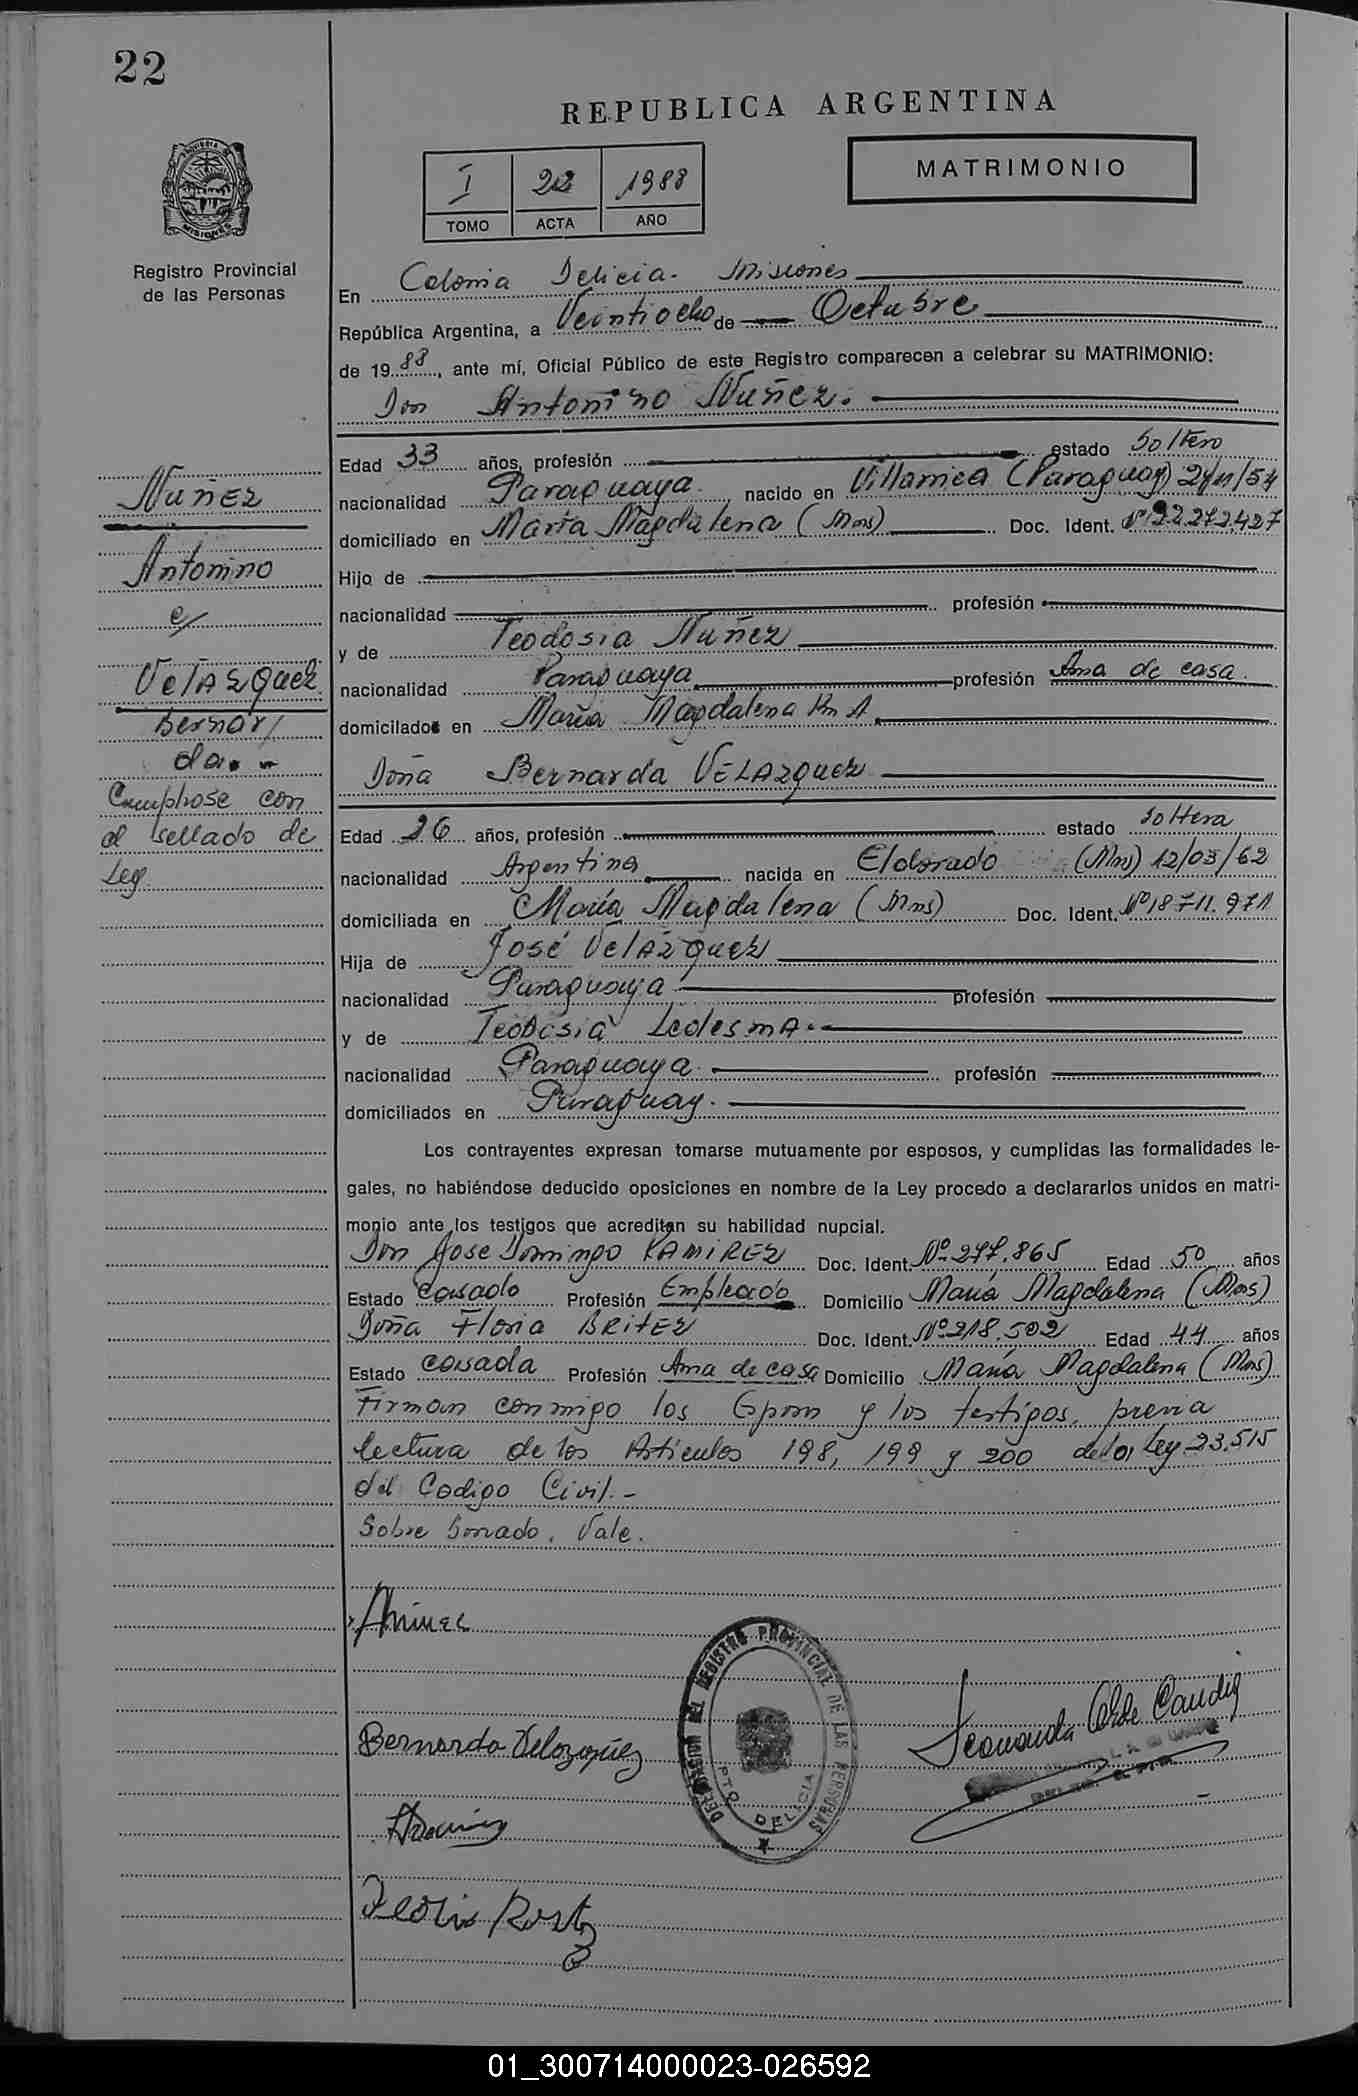 22
REPUBLICA ARGENTINA
I 22 1988
TOMO ACTA AÑO
MATRIMONIO
PROVINCIA DE MISIONES
Registro Provincial
de las Personas
En Colonia Delicia. Misiones
República Argentina, a Veintiocho de Octubre
de 1988, ante mí, Oficial Público de este Registro comparecen a celebrar su MATRIMONIO:
Don Antonino Nuñez.
Edad 33 años, profesión estado Soltero
nacionalidad Paraguaya nacido en Villarrica (Paraguay) 24/11/54
domiciliado en María Magdalena (Mns) Doc. Ident. Nº 92.272.427
Hijo de
nacionalidad profesión
y de Teodosia Nuñez
nacionalidad Paraguaya profesión Ama de casa.
domicilados en María Magdalena Km A
Doña Bernarda VELAZquez
Edad 26 años, profesión estado soltera
nacionalidad Argentina nacida en Eldorado (Mns) 12/03/62
domiciliada en María Magdalena (Mns) Doc. Ident. Nº 18.711.971
Hija de José VelAZquez
nacionalidad Paraguaya profesión
y de Teodosia LedesmA.
nacionalidad Paraguaya. profesión
domiciliados en Paraguay.
Nuñez
Antonino
c/
VelAZquez
Bernar/
da.-
Cumplióse con
el sellado de
Ley.
Los contrayentes expresan tomarse mutuamente por esposos, y cumplidas las formalidades le-
gales, no habiéndose deducido oposiciones en nombre de la Ley procedo a declararlos unidos en matri-
monio ante los testigos que acreditan su habilidad nupcial.
Don Jose Domingo RAMIREZ Doc. Ident. Nº 277.865 Edad 50 años
Estado casado Profesión Empleado Domicilio María Magdalena (Mns)
Doña Floria BRITEZ Doc. Ident. Nº 218.502 Edad 44 años
Estado casada Profesión Ama de casa Domicilio María Magdalena (Mns)
Firman conmigo los Esposos y los testigos, previa
lectura de los Articulos 198, 199 y 200 de la Ley 23.515
del Codigo Civil.-
Sobre borrado. Vale.
Bernarda Velazquez
DELEGACION DEL REGISTRO PROVINCIAL DE LAS PERSONAS
PTO DELICIA
01_300714000023-026592